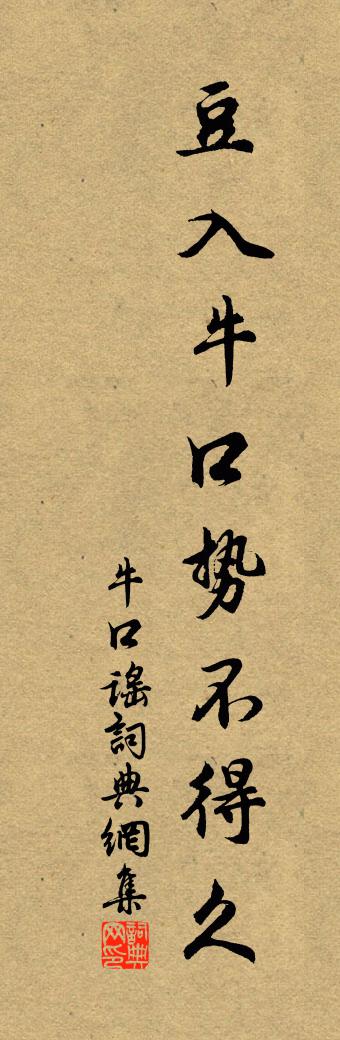 豆入牛口勢不得久
牛口謠詞典網集
詞典网印